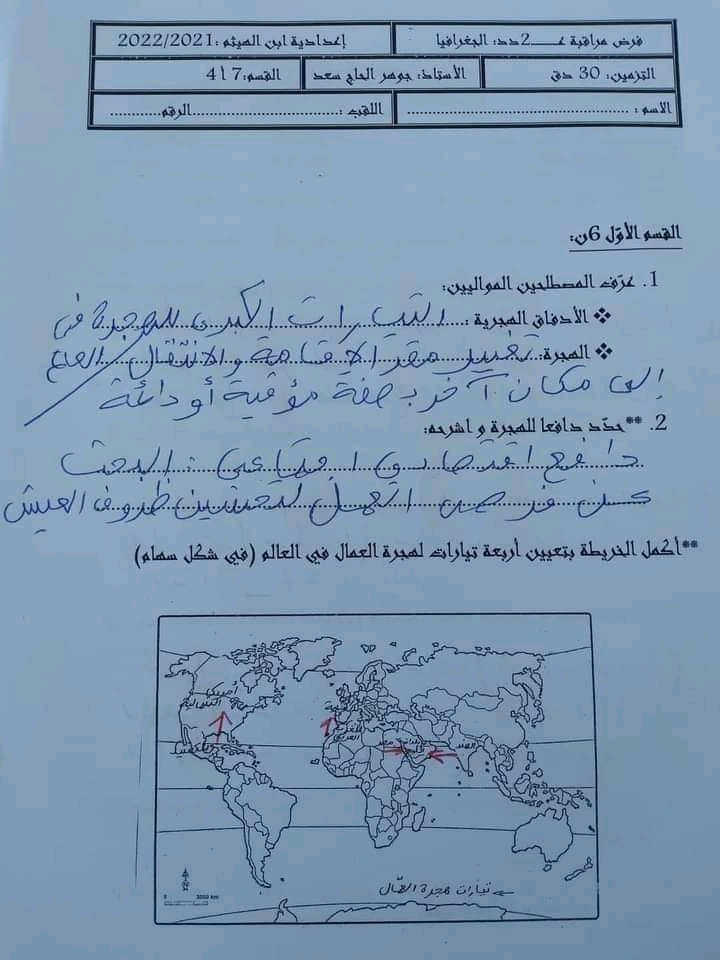 فرض مراقبة عـــ2ـدد: الجغرافيا إعدادية ابن الهيثم :2022/2021
التزمين: 30 دق الأستاذ: جوهر الحاج سعد القسم:7 أ 4
الاسم : ............ اللقب :............الرقم............
القسم الأوّل 6ن:
1. عرّف المصطلحين المواليين:
❖ الأدفاق الهجرية :التيارات الكبرى للهجرة في
❖ الهجرة: تغيير مقر الإقامة والانتقال العالم
إلى مكان آخر بصفة مؤقتة أو دائمة
2. **حدّد دافعا للهجرة و اشرحه:
دافع اقتصادي اجتماعي : البحث
عن فرص العمل لتحسين ظروف العيش
**أكمل الخريطة بتعيين أربعة تيارات لهجرة العمال في العالم (في شكل سهام)
أمريكا
الشمالية
المكسيك
المغرب
العربي
مصر
الهند
تيارات هجرة العمّال
0 3000 km